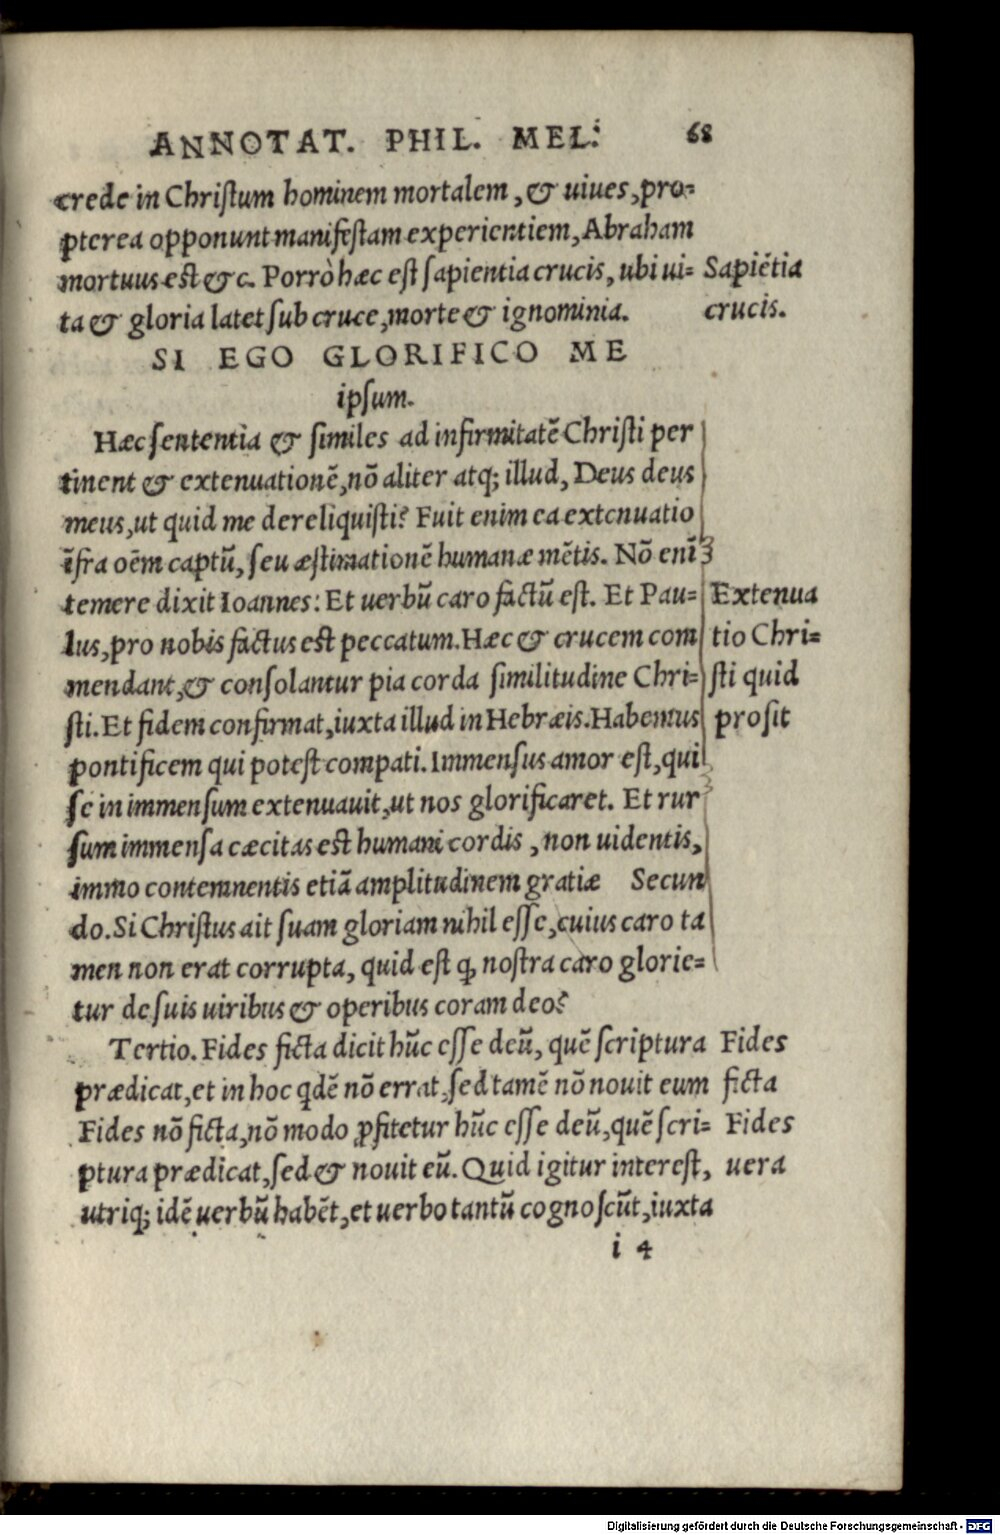 ANNOTAT. PHIL. MEL. 68
crede in Chriſtum hominem mortalem, & uiues, pro-
pterea opponunt manifeſtam experientiem, Abraham
mortuus est &c. Porrò hæc eſt ſapientia crucis, ubi ui-
ta & gloria latet ſub cruce, morte & ignominia.
Sapiētia
crucis.
SI EGO GLORIFICO ME
ipſum.
Hæc ſententia & ſimiles ad infirmitatē Chriſti per
tinent & extenuationē, nō aliter atq; illud, Deus deus
meus, ut quid me dereliquiſti? Fuit enim ea extenuatio
īfra oēm captū, ſeu æſtimationē humanæ mētis. Nō enī
temere dixit Ioannes: Et uerbū caro factū eſt. Et Pau-
lus, pro nobis factus est peccatum. Hæc & crucem com
mendant, & conſolantur pia corda ſimilitudine Chri-
ſti. Et fidem confirmat, iuxta illud in Hebræis. Habemus
pontificem qui poteſt compati. Immenſus amor eſt, qui
ſe in immenſum extenuauit, ut nos glorificaret. Et rur
ſum immenſa cæcitas est humani cordis, non uidentis,
immo contemnentis etiā amplitudinem gratiæ Secun
do. Si Chriſtus ait ſuam gloriam nihil eſſe, cuius caro ta
men non erat corrupta, quid eſt ꝙ noſtra caro glorie-
tur de ſuis uiribus & operibus coram deo?
Extenua
tio Chri-
ſti quid
proſit
Tertio. Fides ficta dicit hūc eſſe deū, quē ſcriptura
prædicat, et in hoc qdē nō errat, ſed tamē nō nouit eum
Fides nō ficta, nō modo ꝓfitetur hūc eſſe deū, quē ſcri-
ptura prædicat, ſed & nouit eū. Quid igitur intereſt,
utriq; idē uerbū habēt, et uerbo tantū cognoſcūt, iuxta
Fides
ficta
Fides
uera
i 4
Digitalisierung gefördert durch die Deutsche Forschungsgemeinschaft - DFG